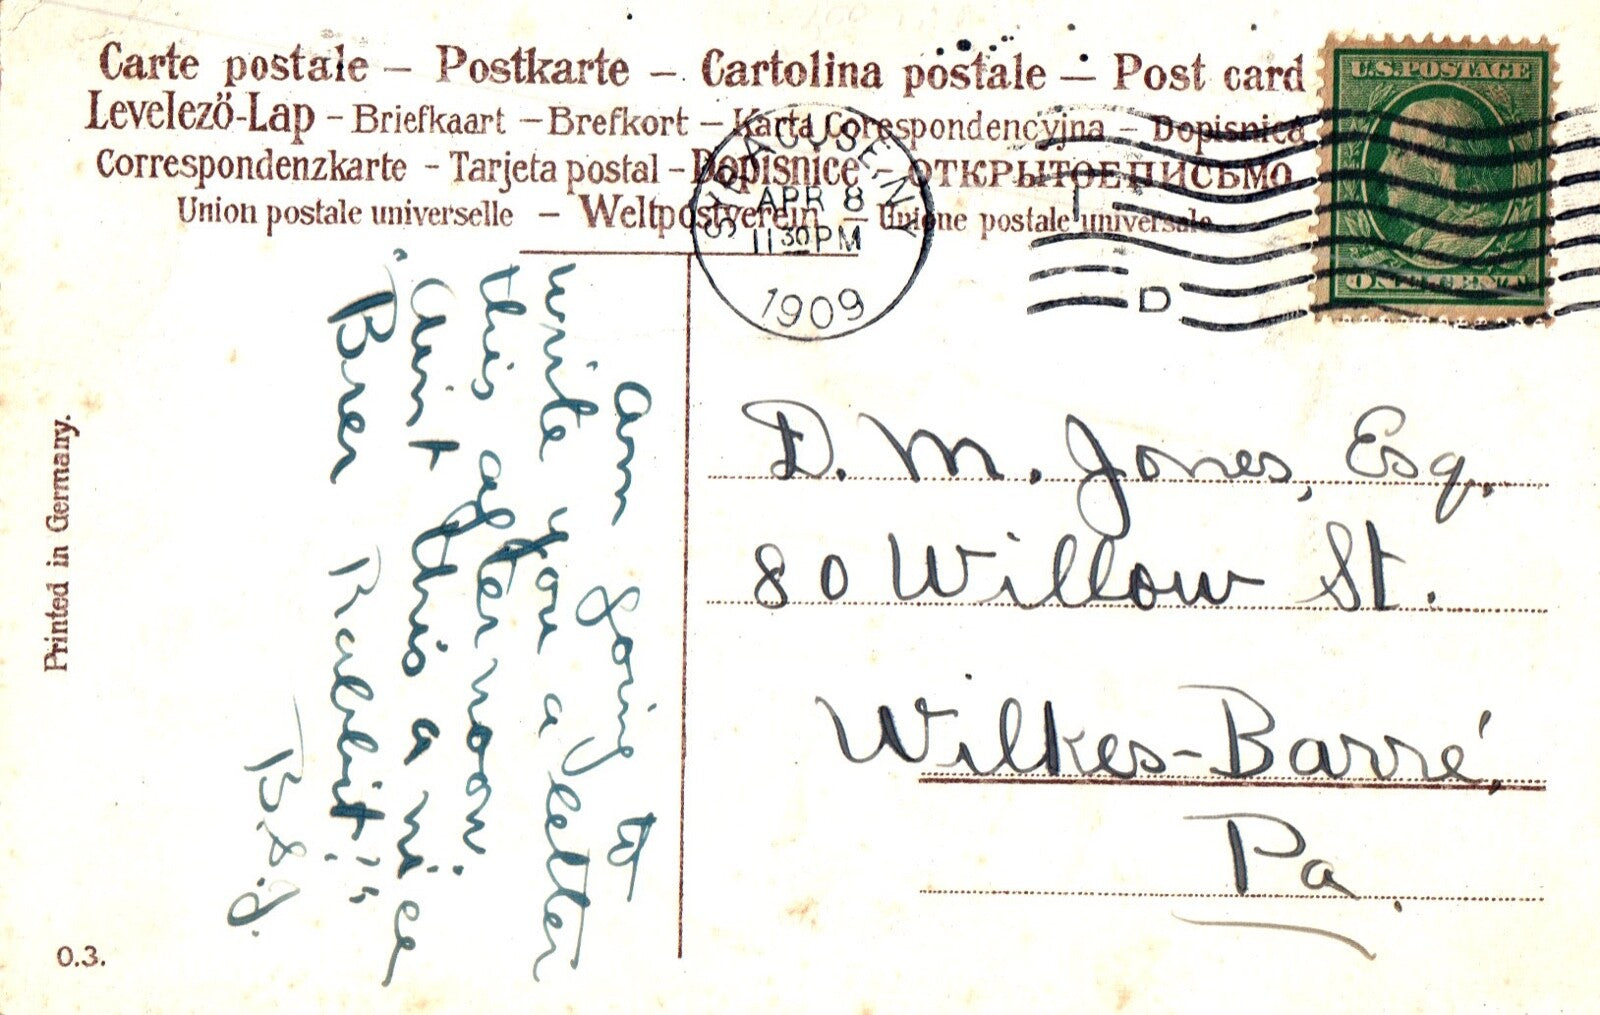 Carte postale – Postkarte – Cartolina postale – Post card
Levelező-Lap – Briefkaart – Brefkort – Karta Corespondencyjna – Dopisnica
Correspondenzkarte – Tarjeta postal – Dopisnice – ОТКРЫТОЕ ПИСЬМО
Union postale universelle – Weltpostverein – Unione postale universale
U.S. POSTAGE
ONE CENT
SYRACUSE, N.Y.
APR 8
11 30 PM
1909
D
am going to
write you a letter
this afternoon.
"Ain't this a nice
Brer Rabbit?"
B.S.J.
D. M. Jones, Esq.
80 Willow St.
Wilkes-Barré,
Pa.
Printed in Germany.
O.3.